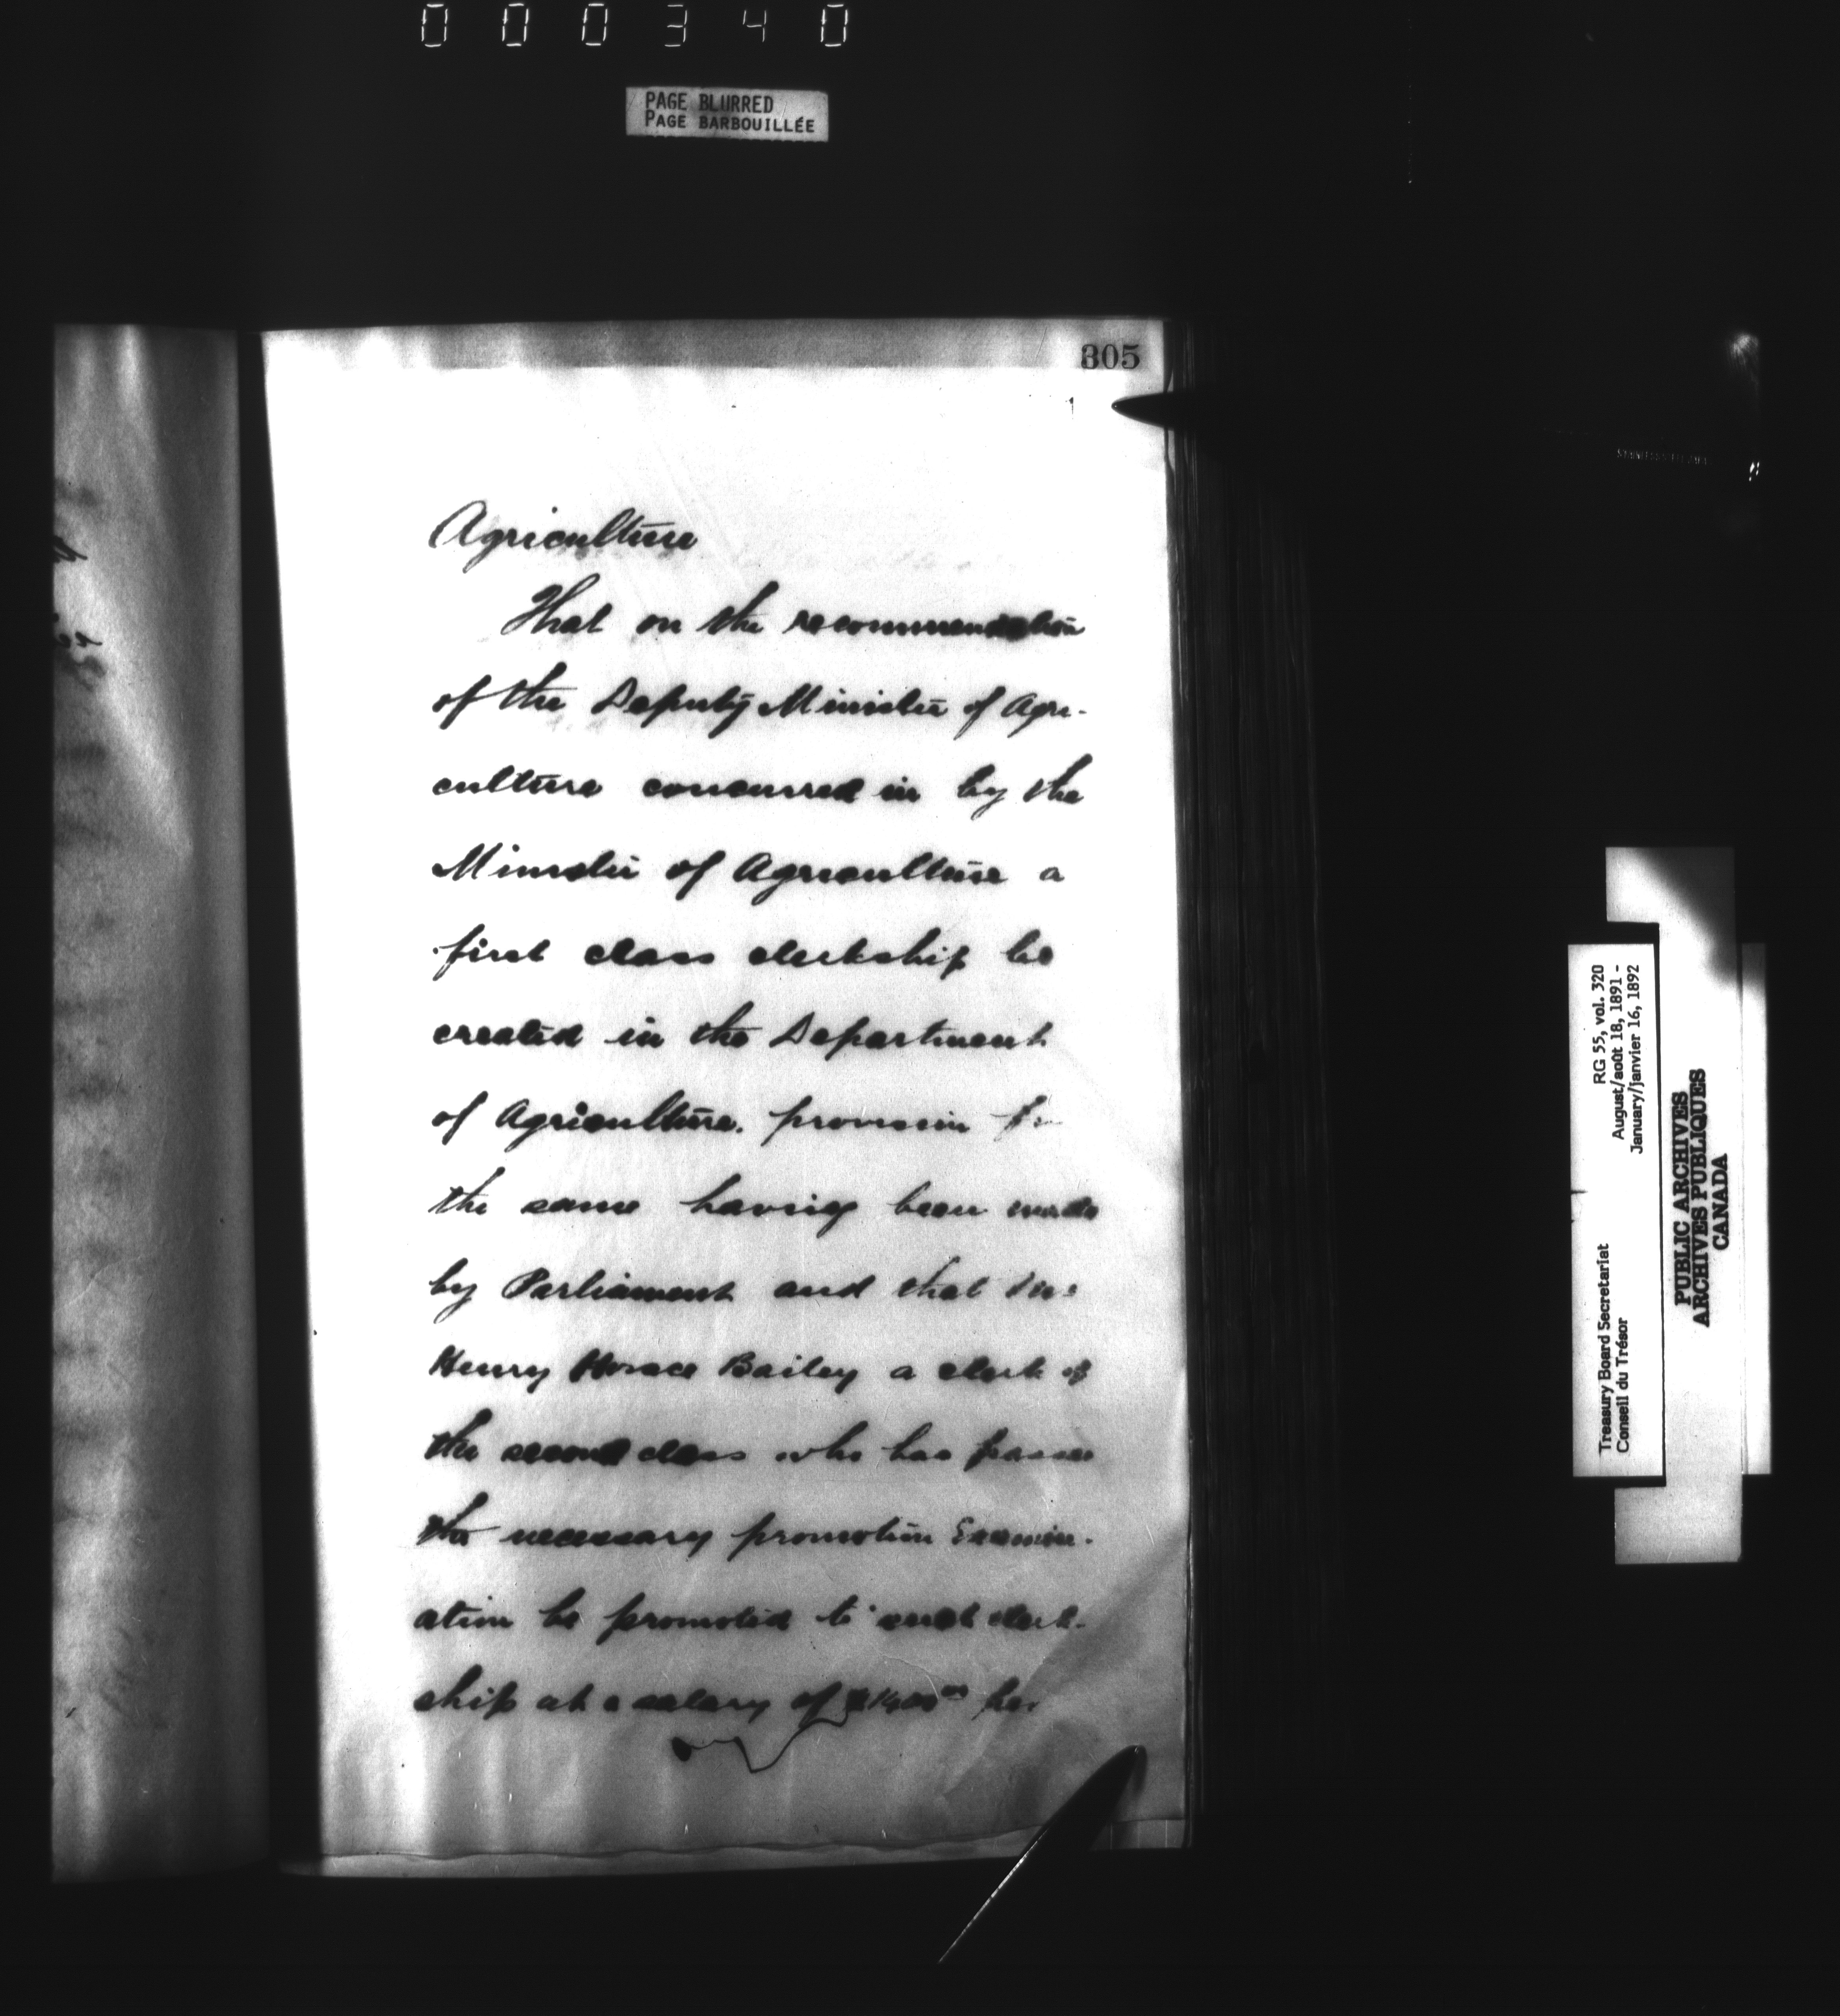 000340
PAGE BLURRED
PAGE BARBOUILLÉE
305
Agriculture
That on the recommendation
of the Deputy Minister of Agri-
culture concurred in by the
Minister of Agriculture a
first class clerkship be
created in the Department
of Agriculture. provision for
the same having been made
by Parliament and that
Henry Horace Bailey a clerk of
the second class who has passed
the necessary promotion Examin-
ation be promoted to such clerk-
ship at a salary of $1400 00 per
RG 55, vol. 320
August/août 18, 1891 -
January/janvier 16, 1892
Treasury Board Secretariat
Conseil du Trésor
PUBLIC ARCHIVES
ARCHIVES PUBLIQUES
CANADA